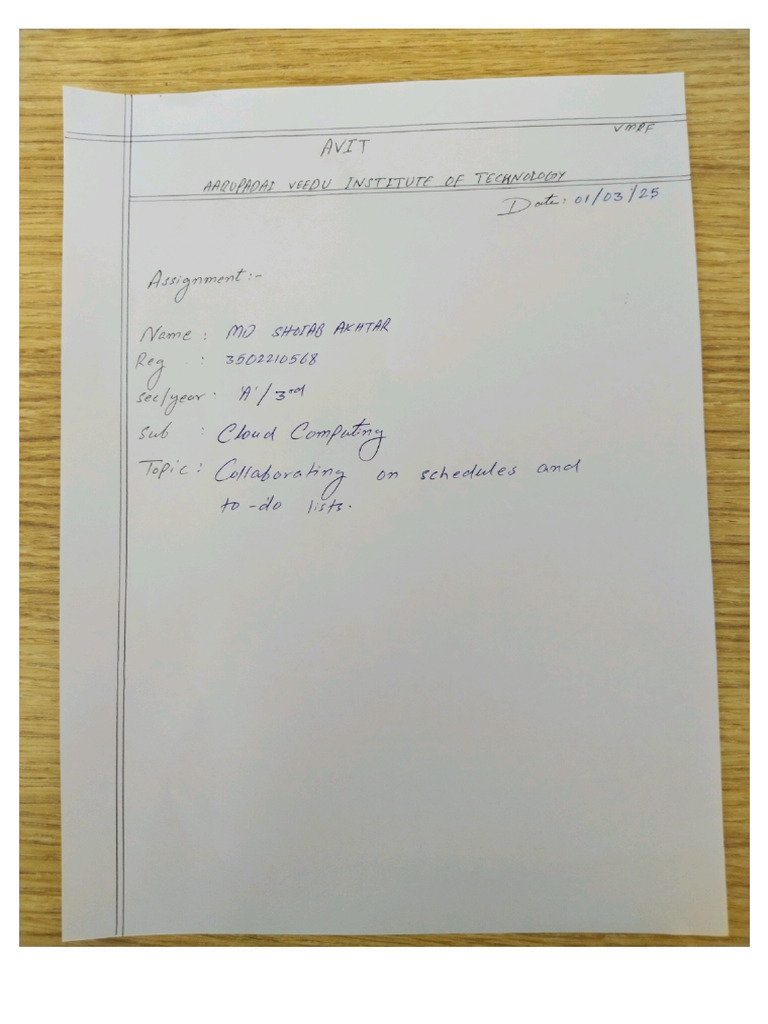 VMRF
AVIT
AARUPADAI VEEDU INSTITUTE OF TECHNOLOGY
Date: 01/03/25
Assignment:-
Name : MD SHOIAB AKHTAR
Reg : 3502210568
sec/year : 'A' / 3rd
Sub : Cloud Computing
Topic : Collaborating on schedules and
to-do lists.